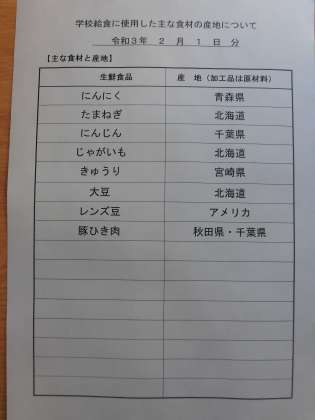 学校給食に使用した主な食材の産地について
令和3年 2 月 1 日 分
【主な食材と産地】
生鮮食品 産 地（加工品は原材料）
にんにく 青森県
たまねぎ 北海道
にんじん 千葉県
じゃがいも 北海道
きゅうり 宮崎県
大豆 北海道
レンズ豆 アメリカ
豚ひき肉 秋田県・千葉県